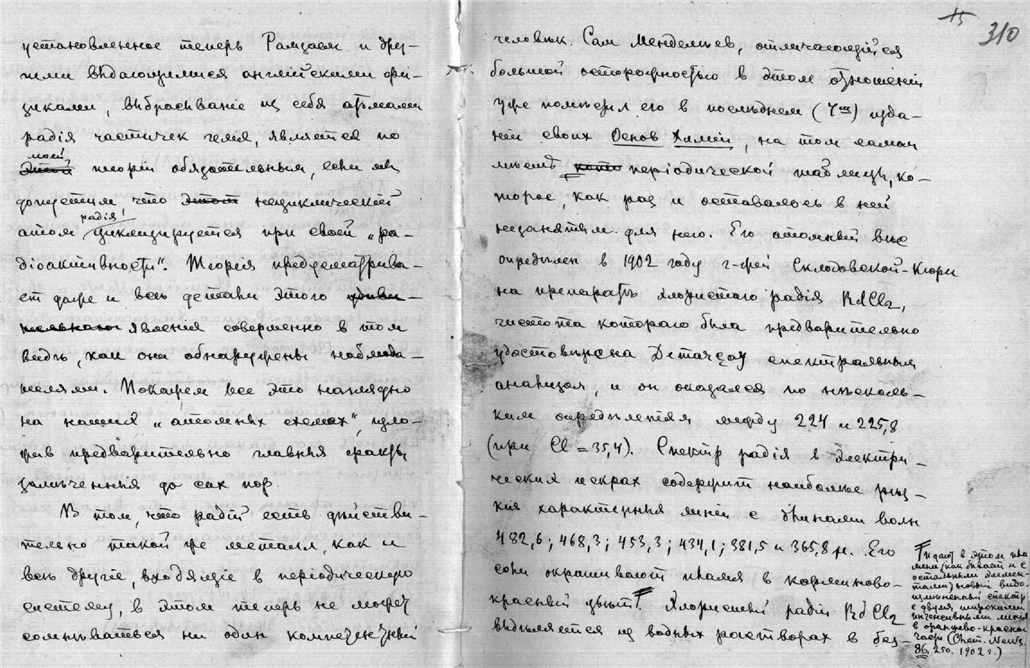 установленное теперь Рамзаем и дру-
гими выдающимися английскими фи-
зиками, выбрасыванiе из себя атомами
радiя частичек гелiя, является по
моей
этой теорiи обязательным, если мы
допустим что этот нециклическiй
радiя!
атом циклизируется при своей „ра-
дiоактивности“. Теорiя предусматрива-
ет даже и все детали этого удиви-
тельнаго явленiя совершенно в том
видѣ, как они обнаружены наблюда-
телями. Покажем все это наглядно
на наших „атомных схемах“, изло-
жив предварительно главные факты,
замѣченные до сих пор.
В том, что радiй есть дѣйстви-
тельно такой же металл, как и
всѣ другiе, входящiе в перiодическую
систему, в этом теперь не может
сомнѣваться ни один компетентный
15
310
человѣк. Сам Менделѣев, отличающiйся
большой осторожностью в этом отношенiи
уже помѣстил его в послѣднем (7ом) изда-
нiи своих Основ Химiи, на том самом
мѣстѣ перiодической таблицы, ко-
торое, как раз и оставалось в ней
незанятым для него. Его атомный вѣс
опредѣлен в 1902 году г-жей Склодовской-Кюри
на препаратѣ хлористаго радiя RdCl₂,
чистота котораго была предварительно
удостовѣрена Демарсэ спектральным
анализом, и он оказался по нѣсколь-
ким опредѣленiям между 224 и 225,8
(при Cl = 35,4). Спектр радiя в электри-
ческих искрах содержит наиболѣе рѣз-
кiя характерныя линiи с длинами волн
482,6; 468,3; 453,3; 434,1; 381,5 и 365,8 μ. Его
соли окрашивают пламя в карминово-
красный цвѣт. Хлористый радiй RdCl₂
выдѣляется из водных растворах в без-
и дают в этом пла
мени (как бывает и с
остальными элемен-
тами) новый видо-
измѣненный спектр
с двумя широкими
интенсивными
в оранжево-красной
части (Chem. News.
86. 250. 1902 г.)